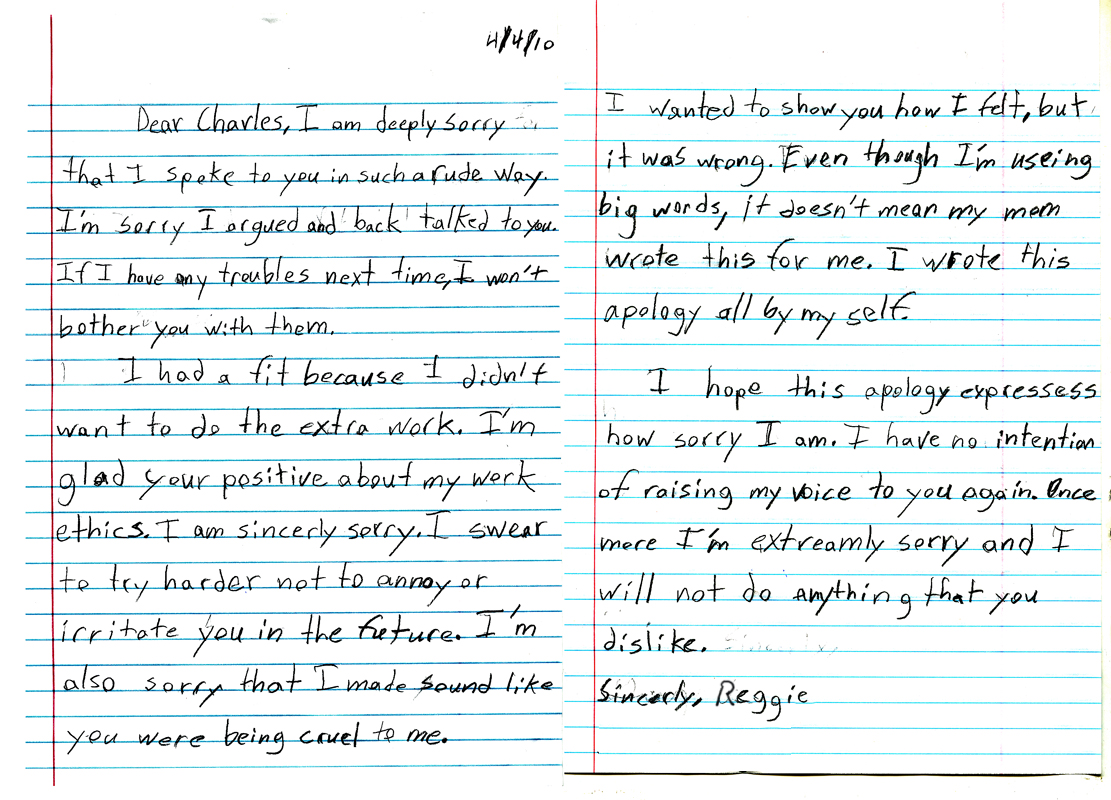 4/4/10
Dear Charles, I am deeply sorry
that I spoke to you in such a rude way.
I'm sorry I argued and back talked to you.
If I have any troubles next time, I won't
bother you with them.
I had a fit because I didn't
want to do the extra work. I'm
glad your positive about my work
ethics. I am sincerly sorry. I swear
to try harder not to annoy or
irritate you in the future. I'm
also sorry that I made sound like
you were being cruel to me.
I wanted to show you how I felt, but
it was wrong. Even though I'm useing
big words, it doesn't mean my mom
wrote this for me. I wrote this
apology all by my self.
I hope this apology expressess
how sorry I am. I have no intention
of raising my voice to you again. Once
more I'm extreamly sorry and I
will not do anything that you
dislike.
Sincerly, Reggie